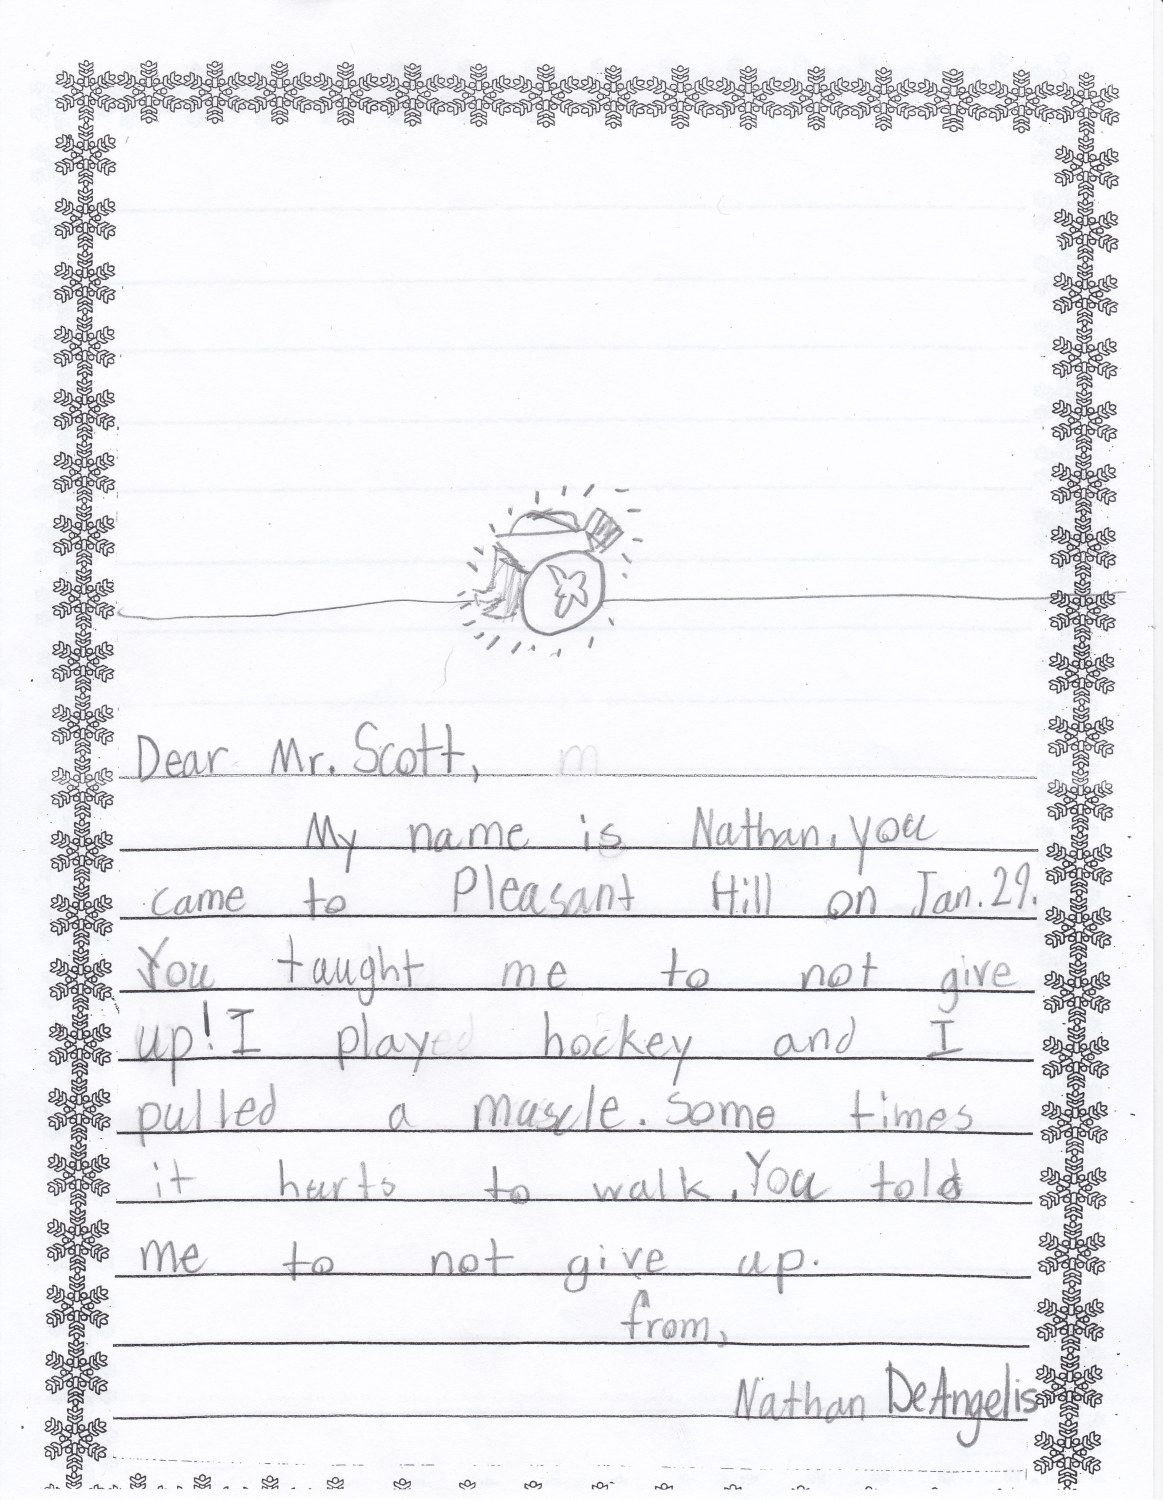 Dear Mr. Scott,
My name is Nathan, you
came to Pleasant Hill on Jan. 29.
You taught me to not give
up! I play hockey and I
pulled a muscle. Some times
it hurts to walk. You told
me to not give up.
from,
Nathan DeAngelis